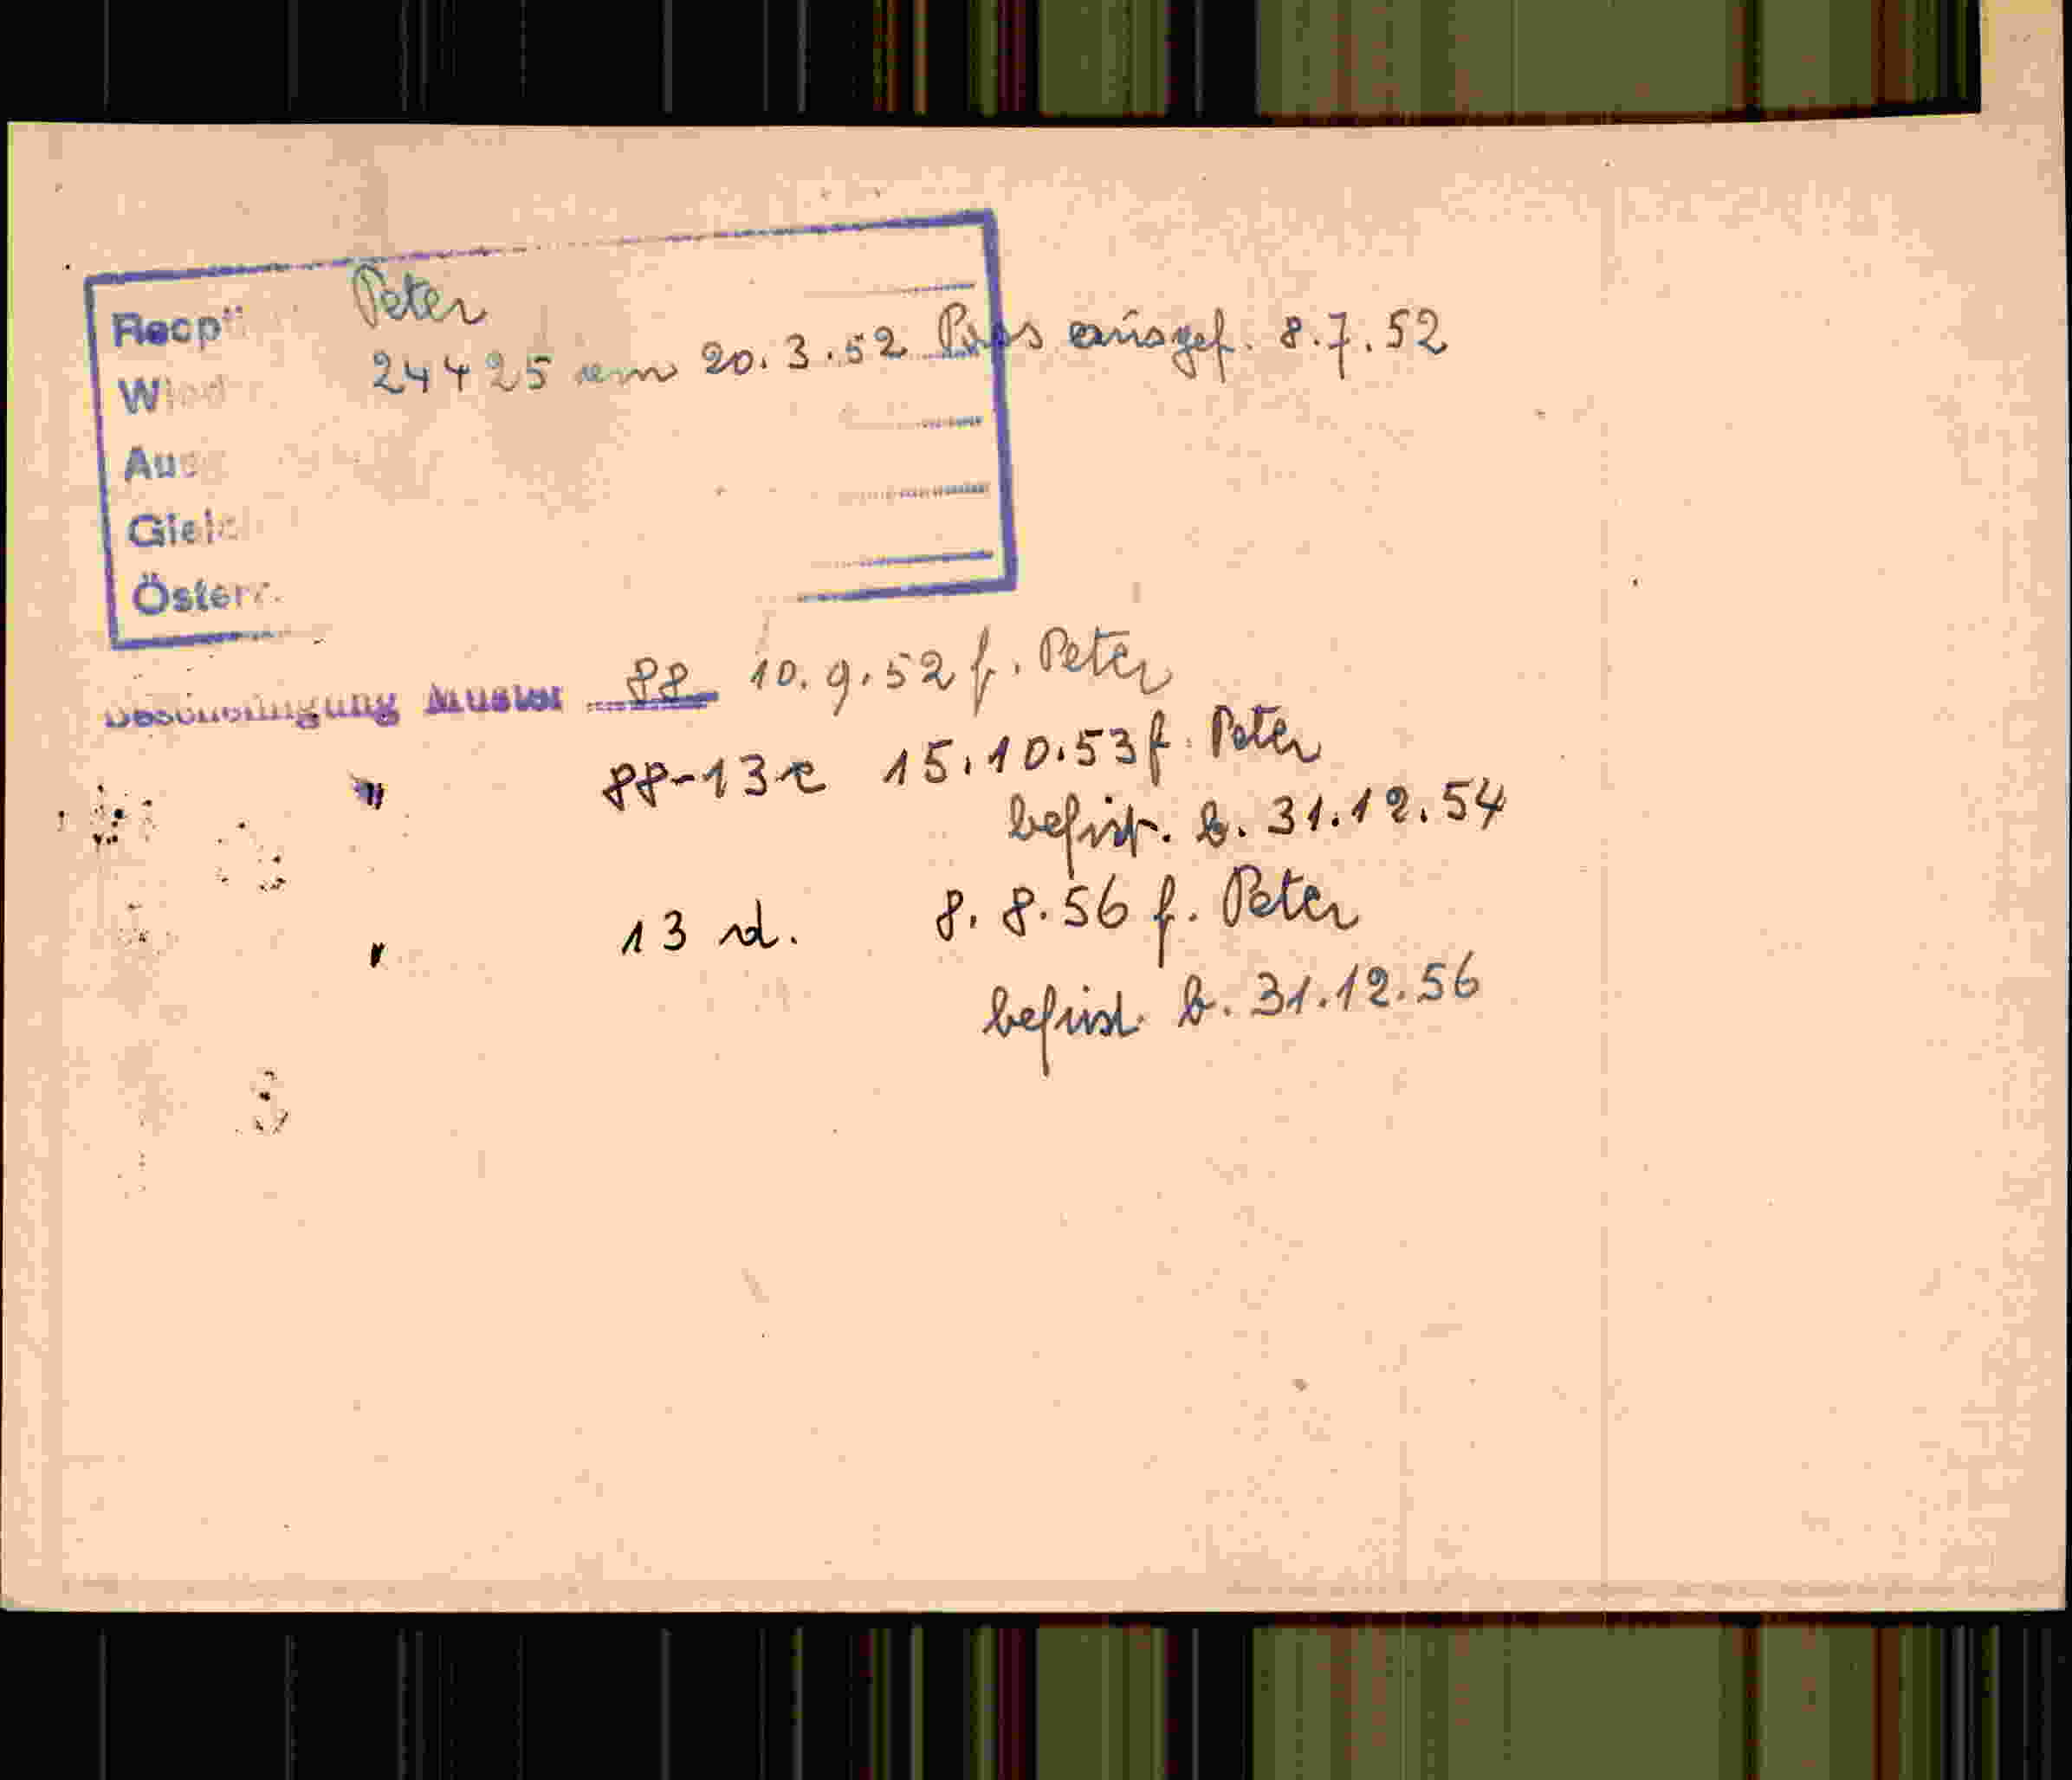 Peter
Recp
24425 am 20.3.52 Pass ausgef. 8.7.52
Wied
Aus
Gleic
Österr.
Bescheinigung Muster 88 10.9.52 f. Peter
" 88-13c 15.10.53 f. Peter
befrist. b. 31.12.54
" 13 d. 8.8.56 f. Peter
befrist. b. 31.12.56